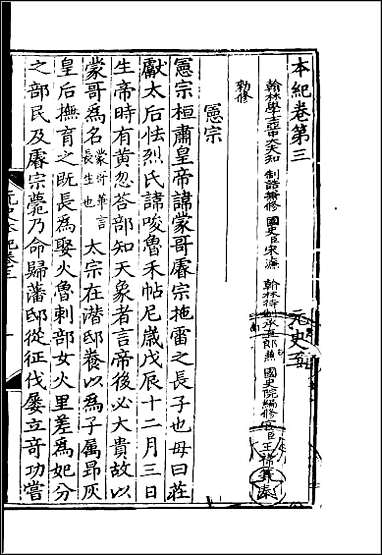 本紀卷第三 元史三
翰林學士亞中大夫知 制誥兼修 國史臣宋濂 翰林待制承直郎兼 國史院編修官臣王禕等奉
勑修
憲宗
憲宗桓肅皇帝諱蒙哥睿宗拖雷之長子也母曰莊
獻太后怯烈氏諱唆魯禾帖尼歲戊辰十二月三日
生帝時有黃忽荅部知天象者言帝後必大貴故以
蒙哥爲名蒙哥華言長生也 太宗在潛邸養以爲子屬昂灰
皇后撫育之既長爲娶火魯剌部女火里差爲妃分
之部民及睿宗薨乃命歸藩邸從征伐屢立奇功嘗
元史本紀卷三 一